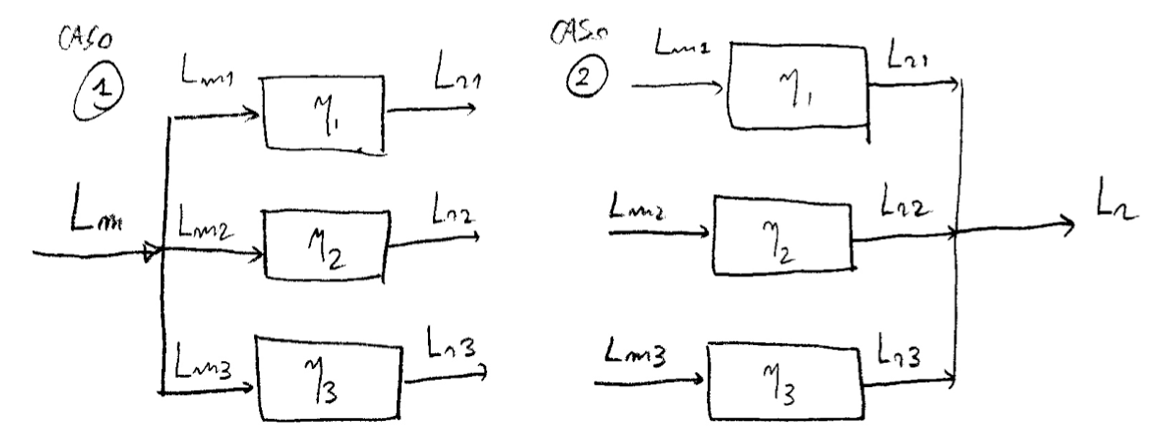 CASO
1
Lm1
η1
Lr1
Lm
Lm2
η2
Lr2
Lm3
η3
Lr3
CASO
2
Lm1
η1
Lr1
Lm2
η2
Lr2
Lr
Lm3
η3
Lr3